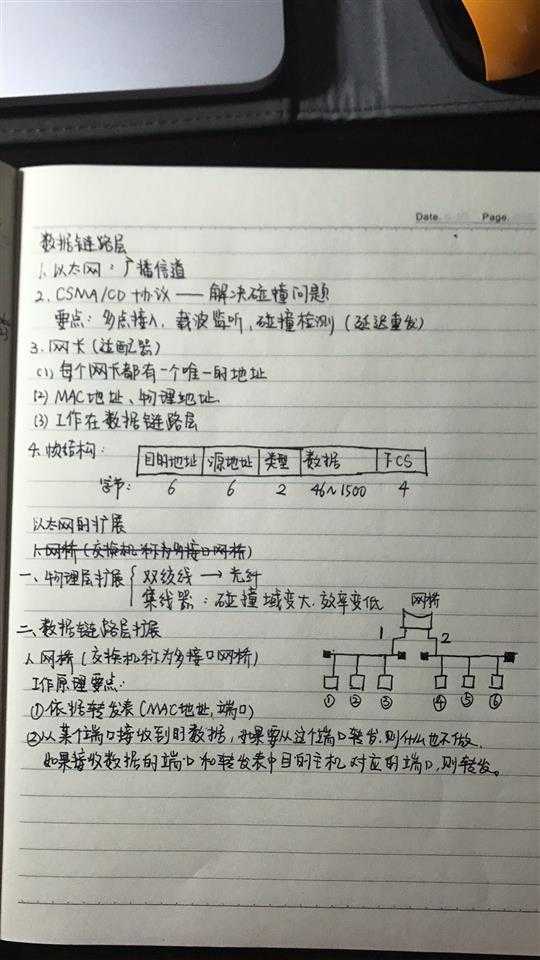 Date. Page.
数据链路层
1. 以太网：广播信道
2. CSMA/CD 协议 —— 解决碰撞问题
要点：多点接入，载波监听，碰撞检测（延迟重发）
3. 网卡（适配器）
(1) 每个网卡都有一个唯一的地址
(2) MAC地址、物理地址.
(3) 工作在数据链路层
4. 帧结构：
目的地址 源地址 类型 数据 FCS
字节： 6 6 2 46~1500 4
以太网的扩展
1. 网桥（交换机称为多接口网桥）
一、物理层扩展 { 双绞线 → 光纤
集线器：碰撞域变大.效率变低
网桥
1 2
二、数据链路层扩展
1. 网桥（交换机称为多接口网桥）
① ② ③ ④ ⑤ ⑥
工作原理要点：
①依据转发表（MAC地址，端口）
②从某个端口接收到时数据，如果要从这个端口转发，则什么也不做.
如果接收数据的端口和转发表中目的主机对应的端口，则转发。